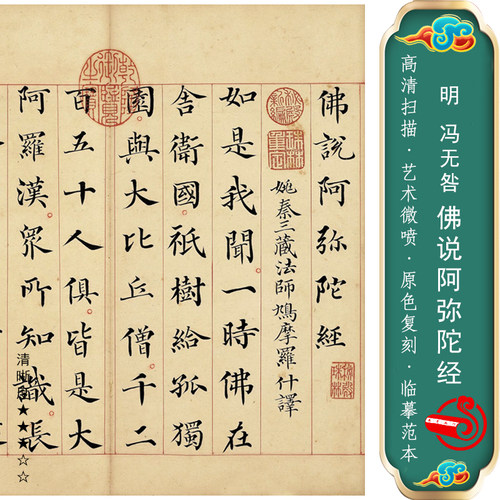 明 冯无咎 佛说阿弥陀经
高清扫描·艺术微喷·原色复刻·临摹范本
佛說阿弥陀經
姚秦三藏法師鳩摩羅什譯
如是我聞一時佛在
舍衛國祇樹給孤獨
園與大比丘僧千二
百五十人俱皆是大
阿羅漢眾所知識長
清晰度★★★☆☆